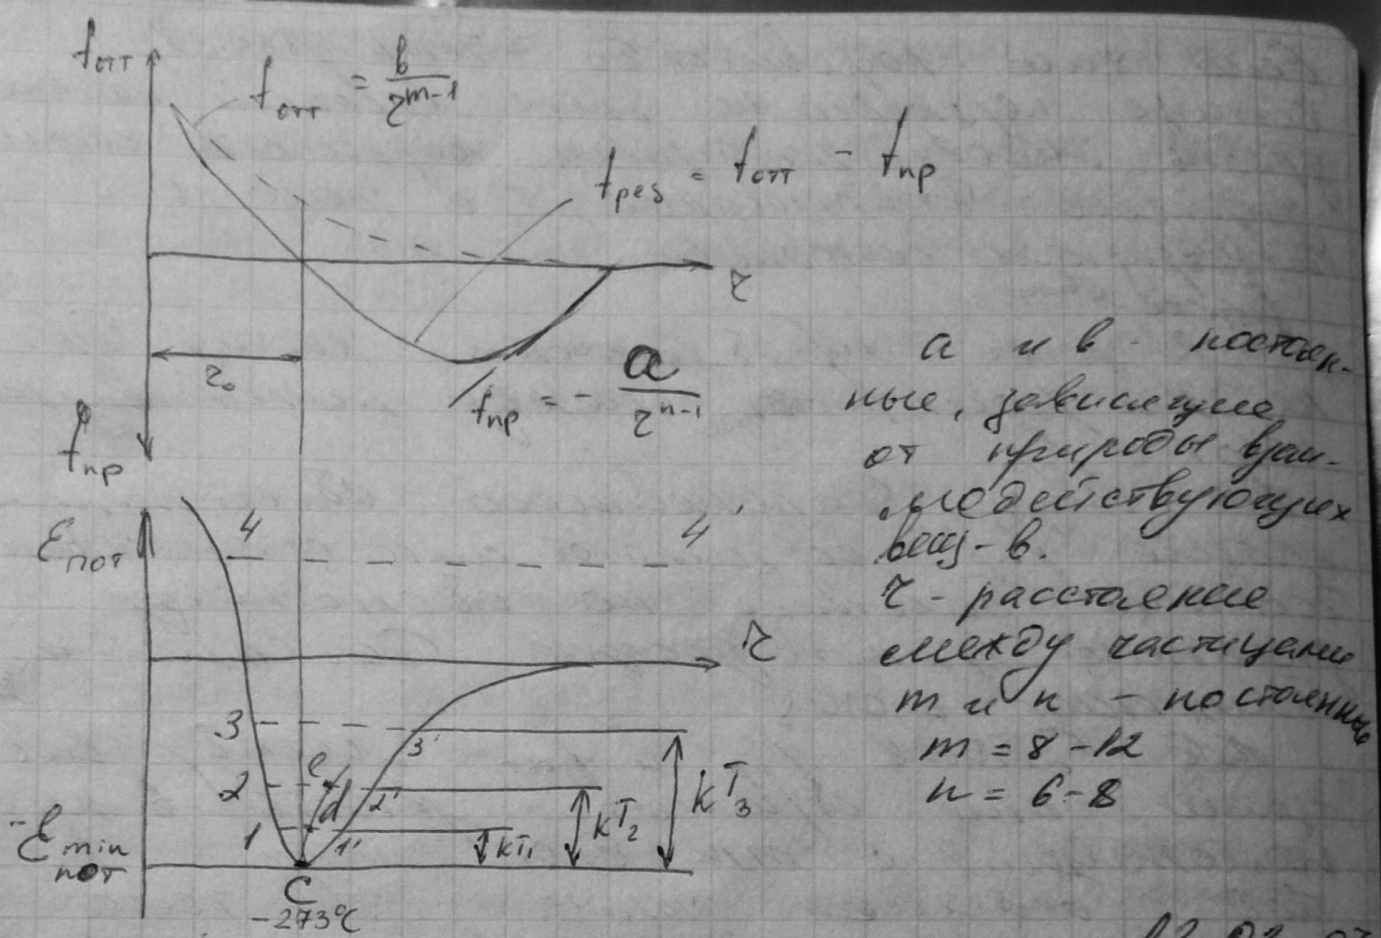 fотт
fотт = в/r^m-1
fрез = fотт - fпр
r
r₀
fпр = - a/r^n-1
fпр
а и в - постоян-
ные, зависящие
от природы взаи-
модействующих
вещ-в.
r - расстояние
между частицами
m и n - постоянные
m = 8-12
n = 6-8
Eпот
4
4'
r
3
3'
2
e
d
2'
1
1'
kT₁
kT₂
kT₃
-E min пот
C
-273°C